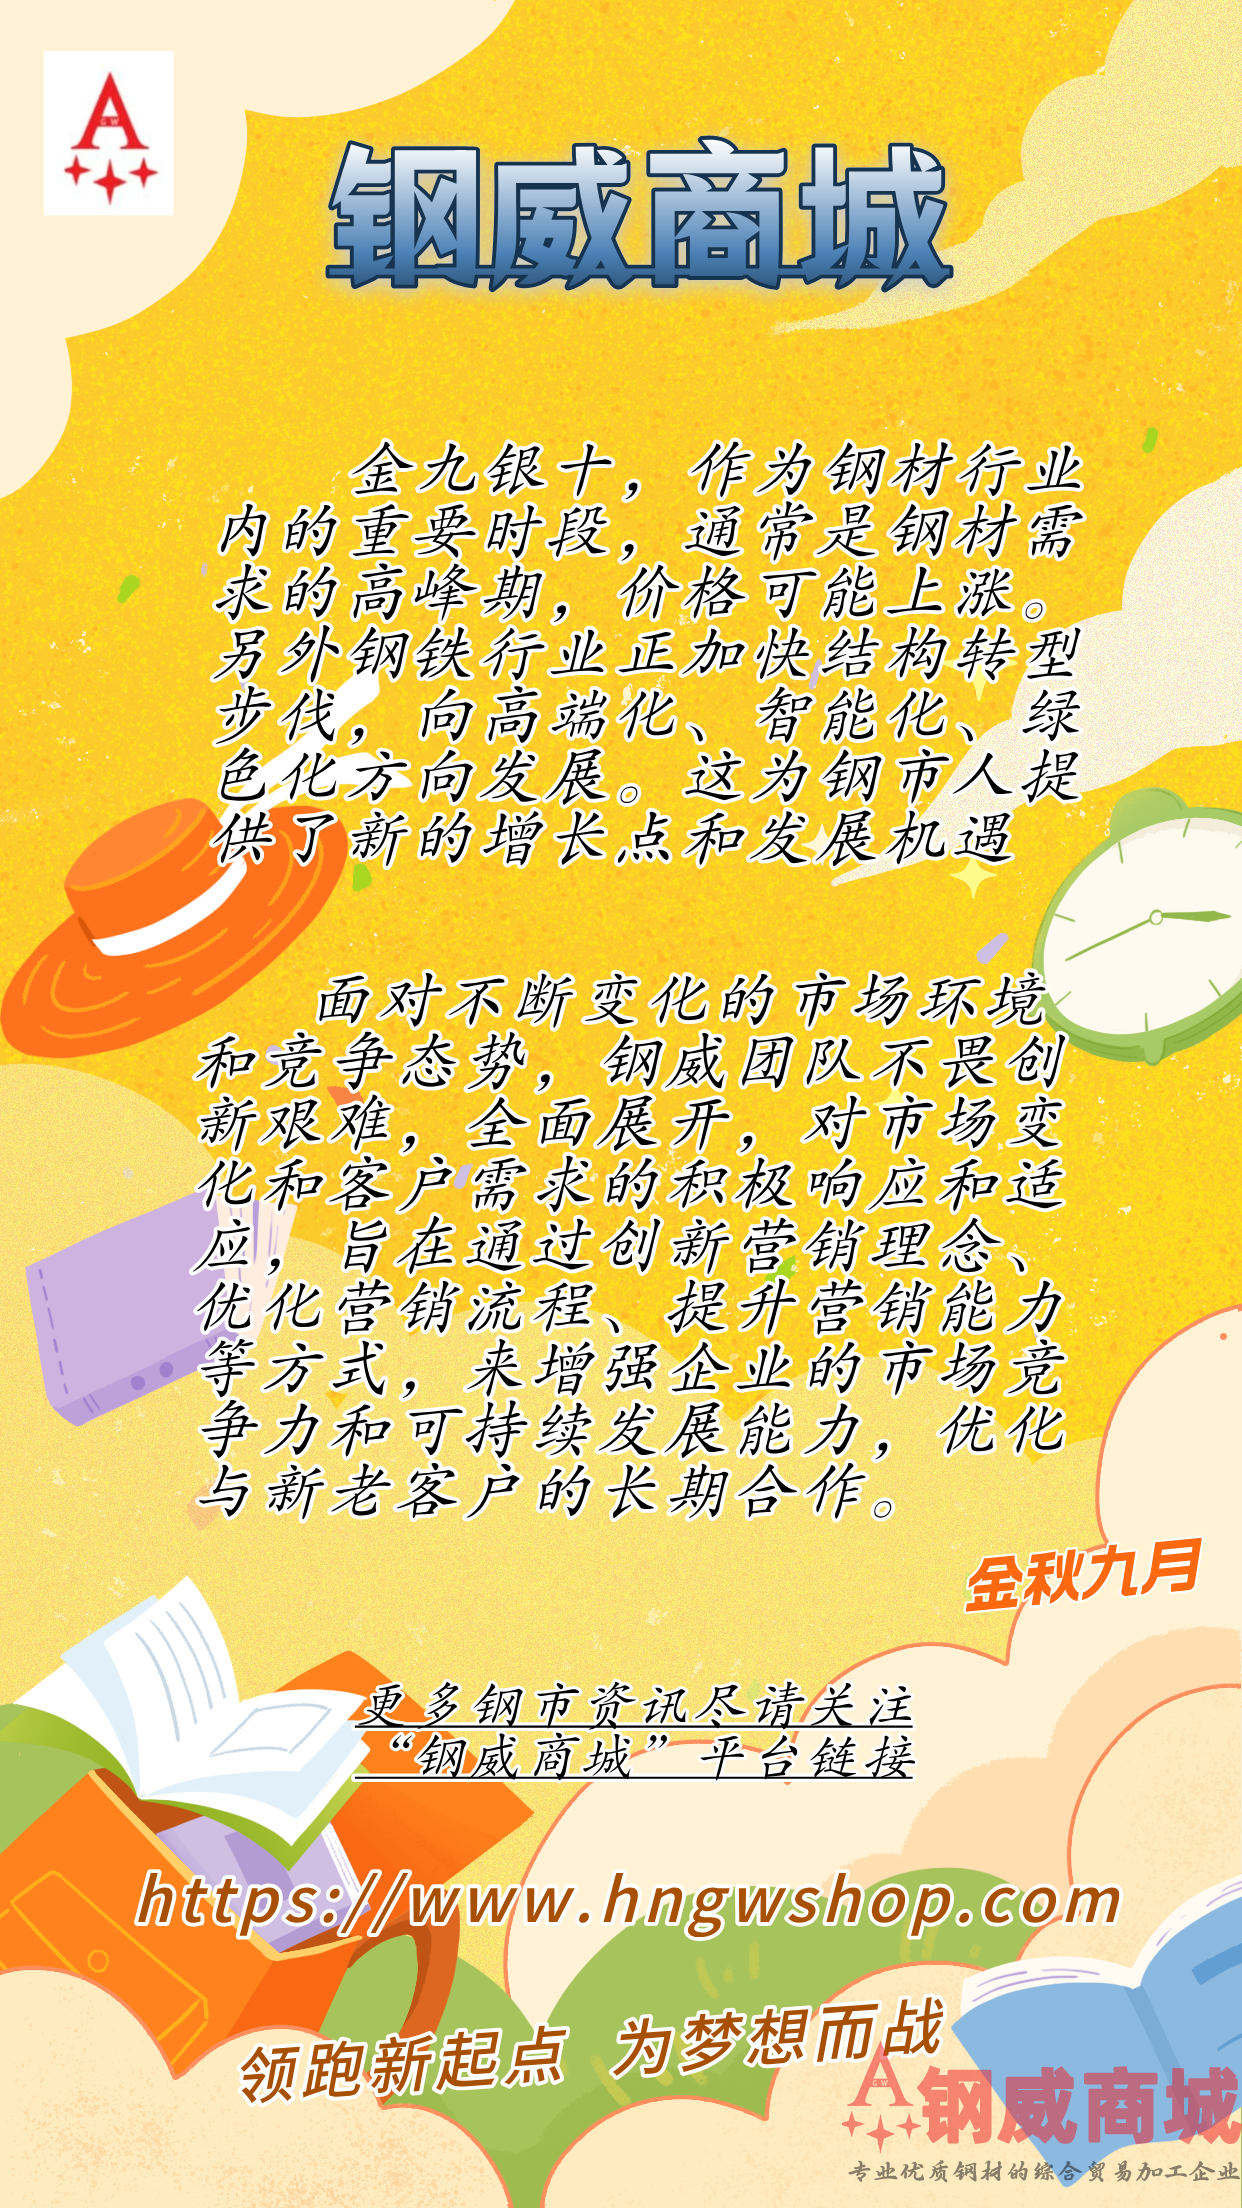 A
GW
钢威商城
金九银十，作为钢材行业
内的重要时段，通常是钢材需
求的高峰期，价格可能上涨。
另外钢铁行业正加快结构转型
步伐，向高端化、智能化、绿
色化方向发展。这为钢市人提
供了新的增长点和发展机遇
面对不断变化的市场环境
和竞争态势，钢威团队不畏创
新艰难，全面展开，对市场变
化和客户需求的积极响应和适
应，旨在通过创新营销理念、
优化营销流程、提升营销能力
等方式，来增强企业的市场竞
争力和可持续发展能力，优化
与新老客户的长期合作。
金秋九月
更多钢市资讯尽请关注
“钢威商城”平台链接
https://www.hngwshop.com
领跑新起点 为梦想而战
A
GW
钢威商城
专业优质钢材的综合贸易加工企业